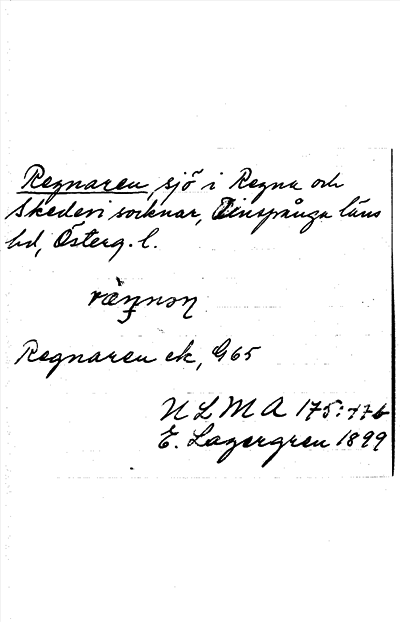 Regnaren, sjö i Regna och
Skedevi socknar, Finspånga läns
hd, Österg. l.
Regnaren ek, G65
ULMA 175:
E. Lagergren 1899